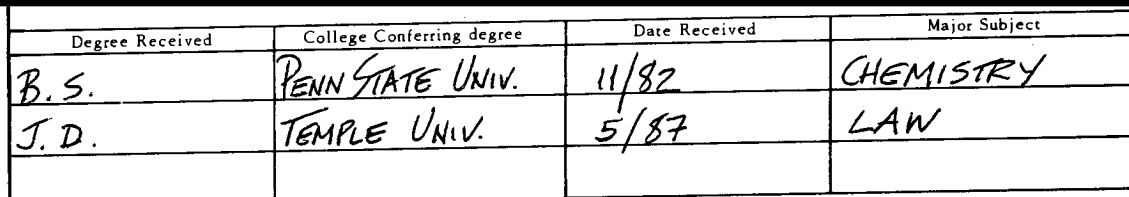 Degree Received College Conferring degree Date Received Major Subject
B.S. PENN STATE UNIV. 11/82 CHEMISTRY
J.D. TEMPLE UNIV. 5/87 LAW